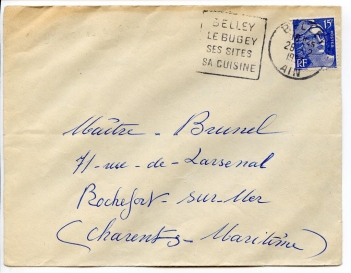 BELLEY
LE BUGEY
SES SITES
SA CUISINE
AIN
15F
RF
Maître - Brunel
71 - rue - de - Larsenal
Rochefort - sur - Mer
(Charente - Maritime)